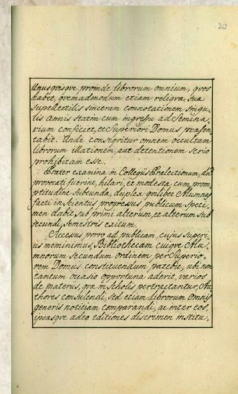 20
aliquosque proinde librorum omnium, quos
habit, quemadmodum etiam reliqua sua
supellectilis sincerum connotationem singu-
lis annis statim cum ingressu ad Semina-
rium conficiet, et Superiori Domus praesen-
tabit. Unde consequitur omnem occultam
librorum illationem aut detentionem serio
prohibitam esse.
examina in Collegiis Praelectionum,
provocati fuerint, hilari, et modesta, cum prom-
ptitudine subeunda, duplex quolibet Alumnus
facti in scientiis progressus publicum speci-
men dabit, sub primi alterum, et alterum sub
secundi semestris exitum.
Excessus porro ad publicam, cujus superi-
us meminimus, Bibliothecam cuique Alu-
mnorum secundum ordinem per Superio-
rem Domus constituendum patebit, ubi non
tantum occasio opportuna aderit, varios
de materiis, quae in scholis pertractantur, Au-
thores consulendi, sed etiam librorum omnis
generis notitiam comparandi, ac inter eos,
ipsasque adeo editiones discrimen institu-